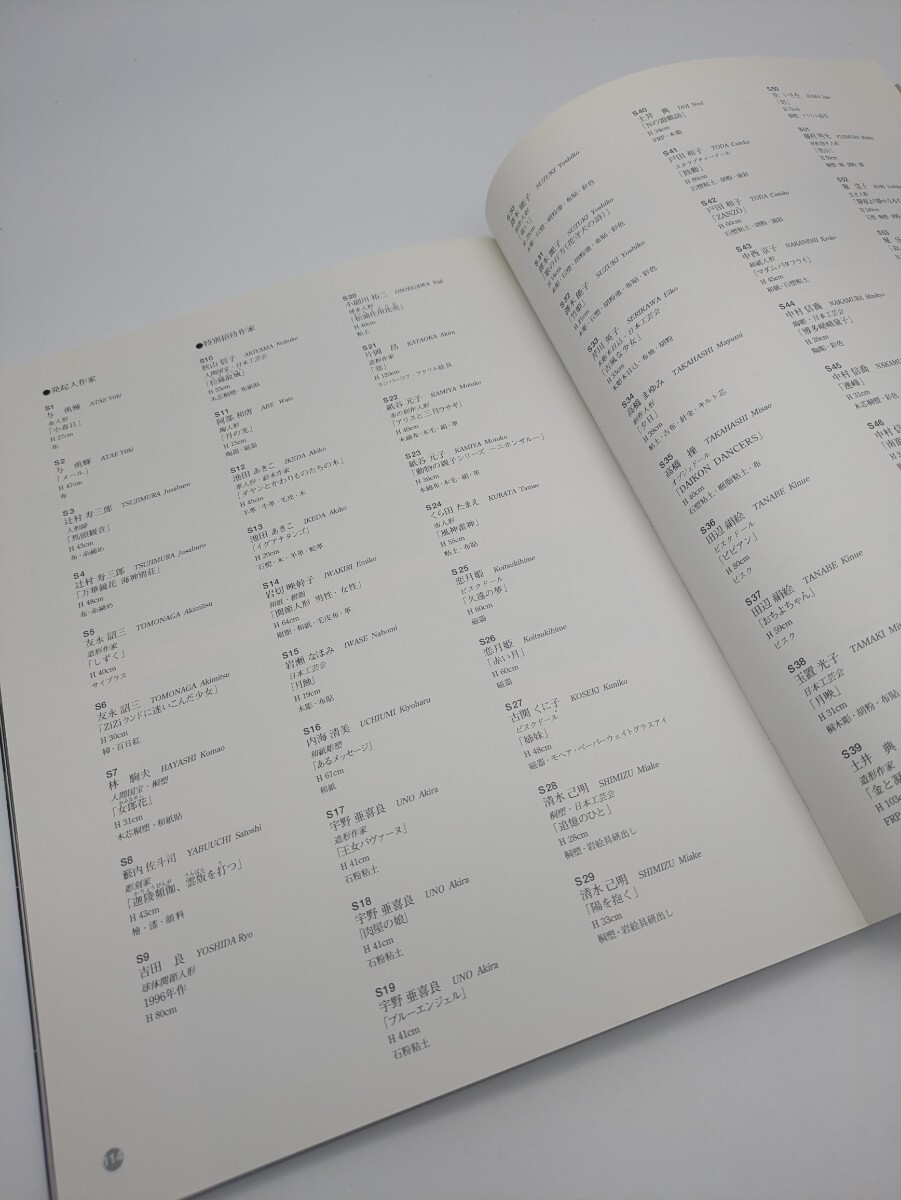 ●発起人作家
S1
与 勇輝 ATAE Yūki
布人形
「小春日」
H 25cm
布
S2
与 勇輝 ATAE Yūki
「メール」
H 47cm
布
S3
辻村 寿三郎 TSUJIMURA Jusaburo
人形師
「馬頭観音」
H 43cm
布・糸締め
S4
辻村 寿三郎 TSUJIMURA Jusaburo
「万華鏡花 海神別荘」
H 48cm
布・糸締め
S5
友永 詔三 TOMONAGA Akimitsu
造形作家
「しずく」
H 40cm
サイプラス
S6
友永 詔三 TOMONAGA Akimitsu
「ZiZiランドに迷いこんだ少女」
H 30cm
樟・百日紅
S7
林 駒夫 HAYASHI Komao
人間国宝・桐塑
「女郎花」
H 31cm
木芯桐塑・和紙貼
S8
籔内 佐斗司 YABUUCHI Satoshi
彫刻家
「迦陵頻伽、雲版を打つ」
H 43cm
檜・漆・顔料
S9
吉田 良 YOSHIDA Ryo
球体関節人形
1996年作
H 80cm
●特別招待作家
S10
秋山 信子 AKIYAMA Nobuko
人間国宝・日本工芸会
H 33cm
木芯桐塑・布紙貼
S11
阿部 和唐 ABE Wato
陶人形
「月の光」
H 15cm
陶器・磁器
S12
池田 あきこ IKEDA Akiko
革人形・絵本作家
「ダヤンとかわりものたちの木」
H 45cm
羊革・牛革・毛皮・木
S13
池田 あきこ IKEDA Akiko
「イグアナタンゴ」
H 20cm
石塑・木・羊革・蛇革
S14
岩切 映幹子 IWAKIRI Emiko
和紙・耕画
「関節人形 男性・女性」
H 64cm
樹脂・和紙・毛皮布・革
S15
岩瀬 なほみ IWASE Nahomi
日本工芸会
「月蝕」
H 19cm
木彫・布貼
S16
内海 清美 UCHIUMI Kiyoharu
和紙彫塑
「あるメッセージ」
H 67cm
和紙
S17
宇野 亜喜良 UNO Akira
造形作家
「王女パヴァーヌ」
H 41cm
石粉粘土
S18
宇野 亜喜良 UNO Akira
「肉屋の娘」
H 41cm
石粉粘土
S19
宇野 亜喜良 UNO Akira
「ブルーエンジェル」
H 41cm
石粉粘土
S20
小副川 祐二 ONOEGAWA Yuji
博多人形
「松浦佐用比売」
H 40cm
粘土
S21
片岡 昌 KATAOKA Akira
造形作家
H 120cm
ランバーコア・アクリル絵具
S22
紙谷 元子 KAMIYA Motoko
布の創作人形
「アリスと三月ウサギ」
H 40cm
木綿布・木毛・絹・革
S23
紙谷 元子 KAMIYA Motoko
「動物の親子シリーズ ーニホンザルー」
H 30cm
木綿布・木毛・絹・革
S24
くら田 たまえ KURATA Tamae
市人形
「風神雷神」
H 55cm
粘土・布貼
S25
恋月姫 Koitsukihime
ビスクドール
「久遠の夢」
H 60cm
磁器
S26
恋月姫 Koitsukihime
「赤い月」
H 60cm
磁器
S27
古関 くに子 KOSEKI Kuniko
ビスクドール
「姉妹」
H 48cm
磁器・モヘア・ペーパーウェイトグラスアイ
S28
清水 己明 SHIMIZU Miake
桐塑・日本工芸会
「追憶のひと」
H 28cm
桐塑・岩絵具研出し
S29
清水 己明 SHIMIZU Miake
「陽を抱く」
H 33cm
桐塑・岩絵具研出し
114
鈴木 能子 SUZUKI Yoshiko
S31
鈴木 能子 SUZUKI Yoshiko
S32
鈴木 能子 SUZUKI Yoshiko
S33
芹川 英子 SERIKAWA Eiko
木彫木目込・日本工芸会
「古風な少女」
H 33cm
木彫木目込・布地・胡粉
S34
高橋 まゆみ TAKAHASHI Mayumi
創作人形
「夕日」
H 38cm
粘土・古布・針金・キルト芯
S35
高橋 操 TAKAHASHI Misao
オブジェドール
「DAIKON DANCERS」
石塑粘土・樹脂粘土・布
S36
田辺 絹絵 TANABE Kinue
ビスクドール
「ビビアン」
H 80cm
ビスク
S37
田辺 絹絵 TANABE Kinue
「おちよちゃん」
H 59cm
ビスク
S38
玉置 光子 TAMAKI Mi
日本工芸会
「月映」
H 31cm
桐木彫・胡粉・布貼
S39
土井 典
造形作家
「金と
H 103c
FRP
S40
土井 典 DOI Nori
「Nの遊戯函」
H 34cm
FRP・木箱
S41
戸田 和子 TODA Cazuko
スカラプチャードール
H 80cm
石塑粘土・胡粉・油彩
S42
戸田 和子 TODA Cazuko
「ZANZŌ」
H 60cm
石塑粘土・胡粉・油彩
S43
中西 京子 NAKANISHI Kyoko
和紙人形
「マダムバタフライ」
H 45cm
和紙・石塑粘土
S44
中村 信喬 NAKAMURA Shinkyo
陶彫・日本工芸会
H 20cm
陶彫・彩色
S45
中村 信喬 NAKAMURA Shi
「漣峰」
H 31cm
木芯桐塑・彩色
S46
中村 信
「南
S50
S51
S52
S53